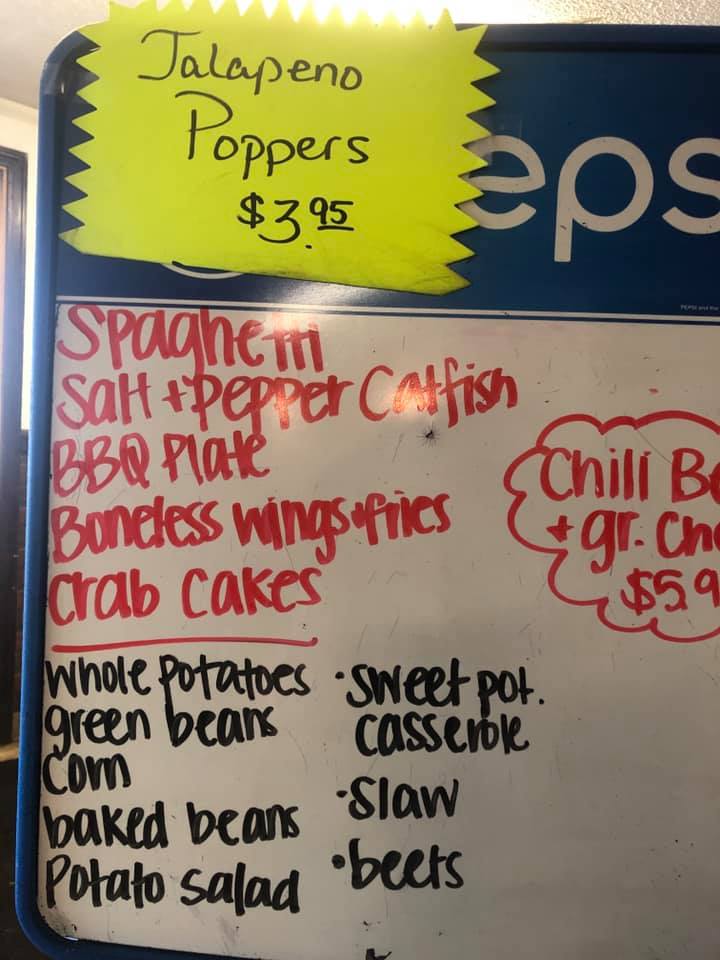 Jalapeno
Poppers
$3.95
eps
Spaghetti
Salt + Pepper Catfish
BBQ Plate
Boneless wings + fries
Crab Cakes
Chili Be
+ gr. Che
$5.9
Whole Potatoes
green beans
Corn
baked beans
Potato salad
·sweet pot.
casserole
·Slaw
·beets